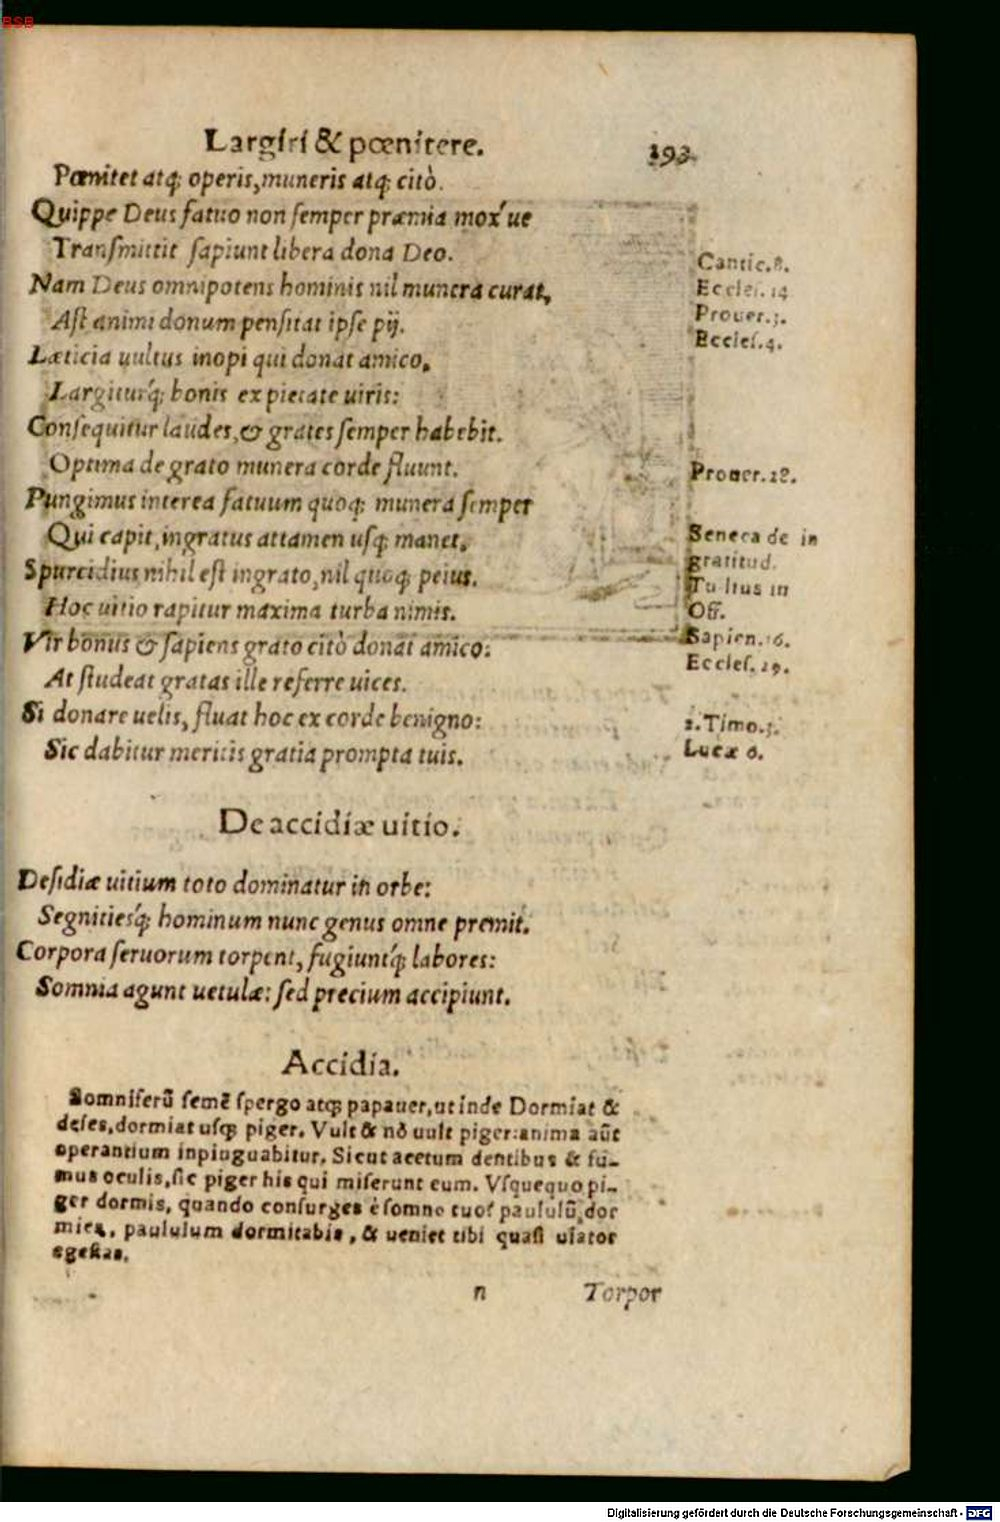 BSB
Largiri & pœnitere. 193
Pœnitet atq; operis, muneris atq; citò.
Quippe Deus fatuo non ſemper præmia mox'ue
Tranſmittit ſapiunt libera dona Deo.
Nam Deus omnipotens hominis nil munera curat,
Aſt animi donum penſitat ipſe pij.
Læticia uultus inopi qui donat amico,
Largitur'q; bonis ex pietate uiris:
Conſequitur laudes, & grates ſemper habebit.
Optima de grato munera corde fluunt.
Pungimus interea fatuum quoq; munera ſemper
Qui capit, ingratus attamen uſq; manet.
Spurcidius nihil eſt ingrato, nil quoq; peius.
Hoc uitio rapitur maxima turba nimis.
Vir bonus & ſapiens grato citò donat amico:
At ſtudeat gratas ille referre uices.
Si donare uelis, fluat hoc ex corde benigno:
Sic dabitur meritis gratia prompta tuis.
Cantic. 8.
Eccleſ. 14
Prouer. 3.
Eccleſ. 4.
Prouer. 28.
Seneca de in
gratitud.
Tullius in
Off.
Sapien. 16.
Eccleſ. 29.
Timo.
Lucæ 6.
De accidiæ uitio.
Deſidiæ uitium toto dominatur in orbe:
Segnities'q; hominum nunc genus omne premit.
Corpora ſeruorum torpent, fugiunt'q; labores:
Somnia agunt uetulæ: ſed precium accipiunt.
Accidia.
Somniferũ ſemẽ ſpergo atq; papauer, ut inde Dormiat &
deſes, dormiat uſq; piger. Vult & nõ uult piger: anima aũt
operantium inpinguabitur. Sicut acetum dentibus & fu-
mus oculis, ſic piger his qui miſerunt eum. Vſquequo pi-
ger dormis, quando conſurges è ſomno tuo? paululũ, dor
mies, paululum dormitabis, & ueniet tibi quaſi uiator
egeſtas.
n Torpor
Digitalisierung gefördert durch die Deutsche Forschungsgemeinschaft - DFG